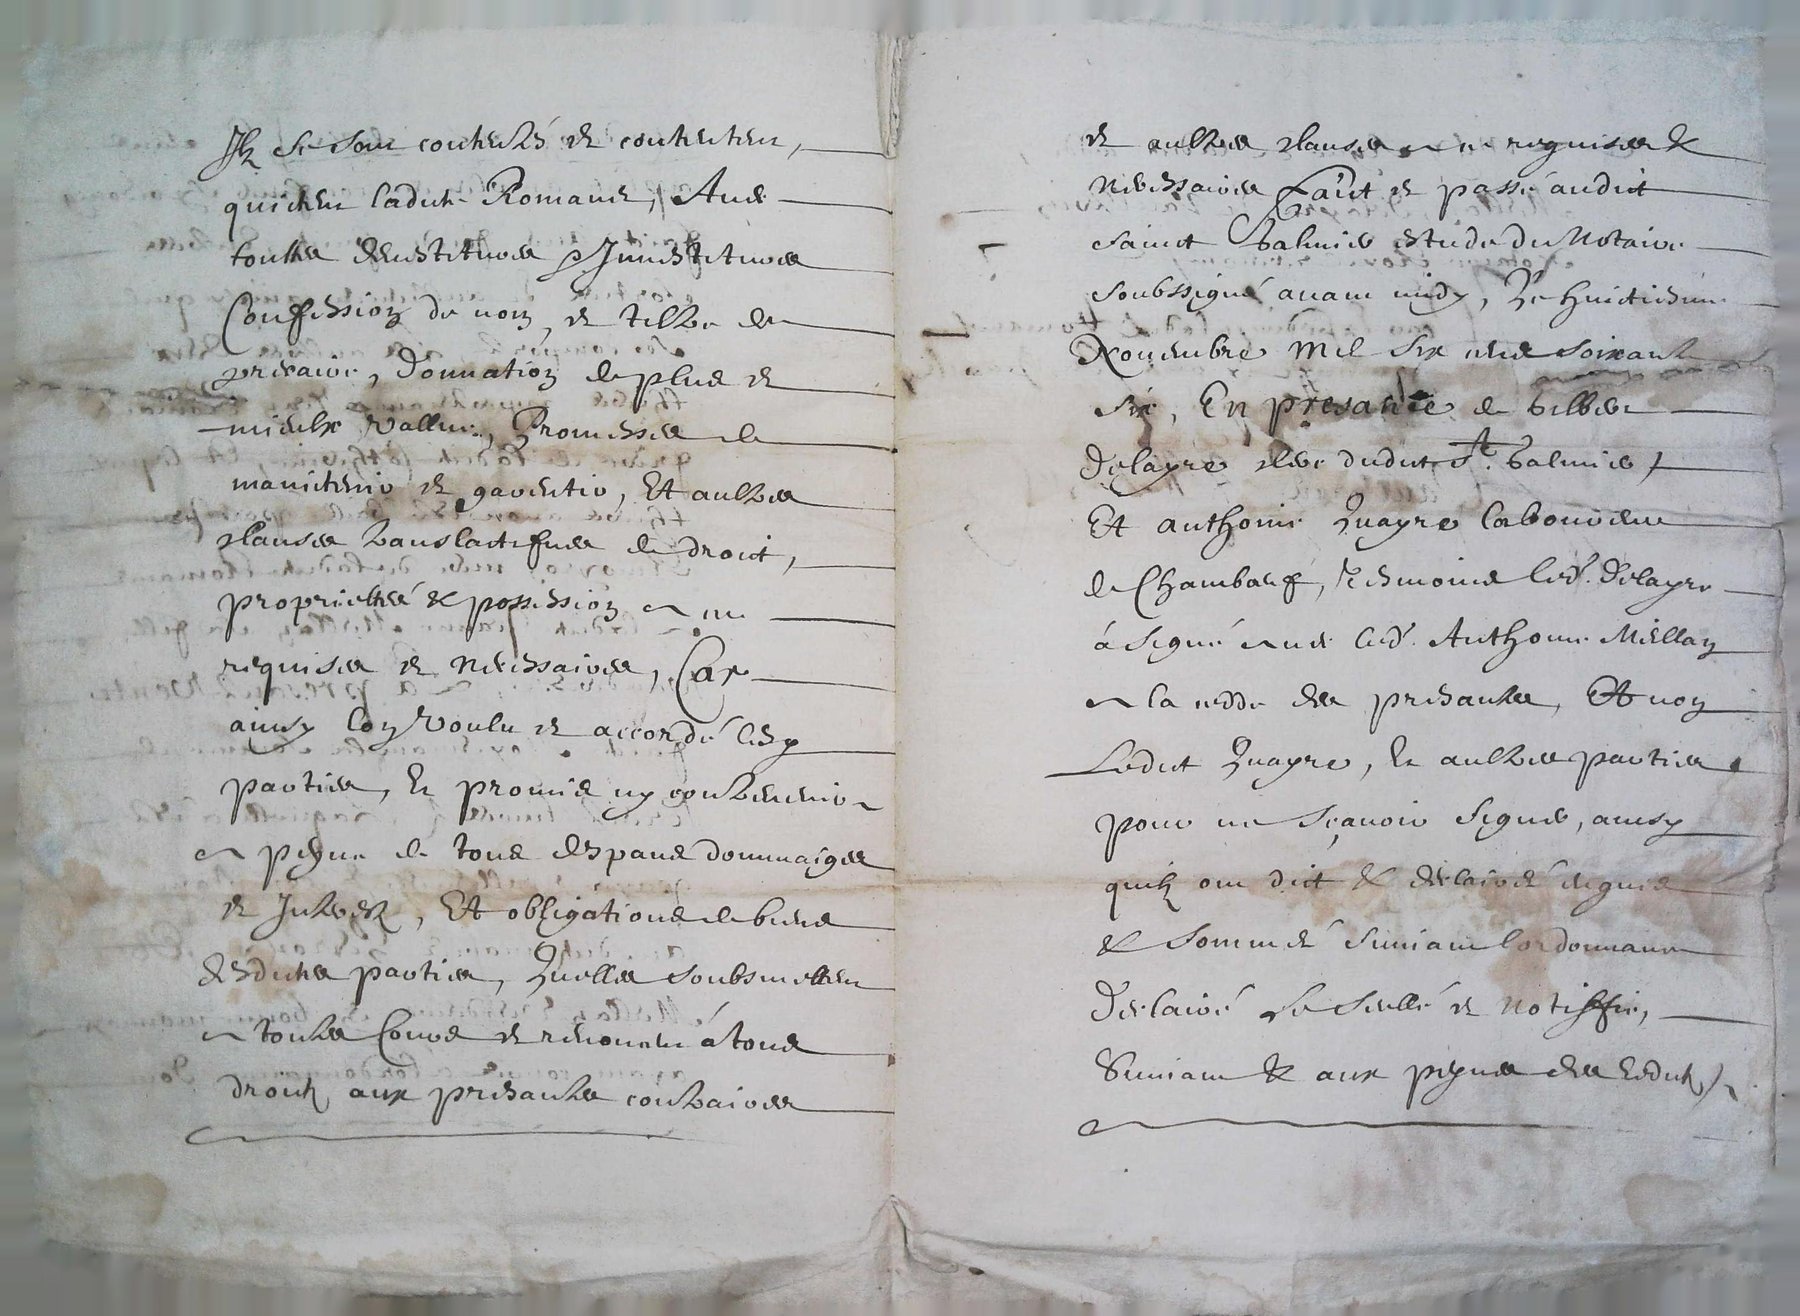 Ilz se sont contentés et contentent,
quictent ladicte Romane, Avec
touttes devestitures Jnvestitures
Confession de nom et tiltre de
precaire, Donnation de plus et
mieulx vallue, Promesses de
maintenir et garentir, Et aultres
clauses translactifves de droict,
proprietté & possession en ce
requises et necessaires, Car
ainsy lon voulu et accordé lesd
parties, Et promis ny contrevenir
a peyne de tous despans dommaiges
et Jnterestz, Et obligations de biens
desdictes parties, Quelles soubsmettent
a toutes Cours et renoncent á tous
droictz aux presantes contraires
et aultres clauses a ce requises &
necessaires Faict et passé audict
Sainct Galmier estude du Notaire
soubssigné avant midy, Le huictiesme
Novembre Mil six cens soixante
six, En presance de Gilbert
Delayre clerc dudict St. Galmier,
Et Anthoine Quayre laboureur
de Chambœuf, tesmoins led. Delayre
á signé avec led. Anthoine Mellay
a la cedde des presantes, Et non
Ledict Quayre, Et aultres parties
pour ne sçavoir signer, ainsy
quilz ont dict & declairé enquis
& sommés suivant lordonnance
Declairé le scellé et notiffié,
Suivant & aux peynes des Edictz